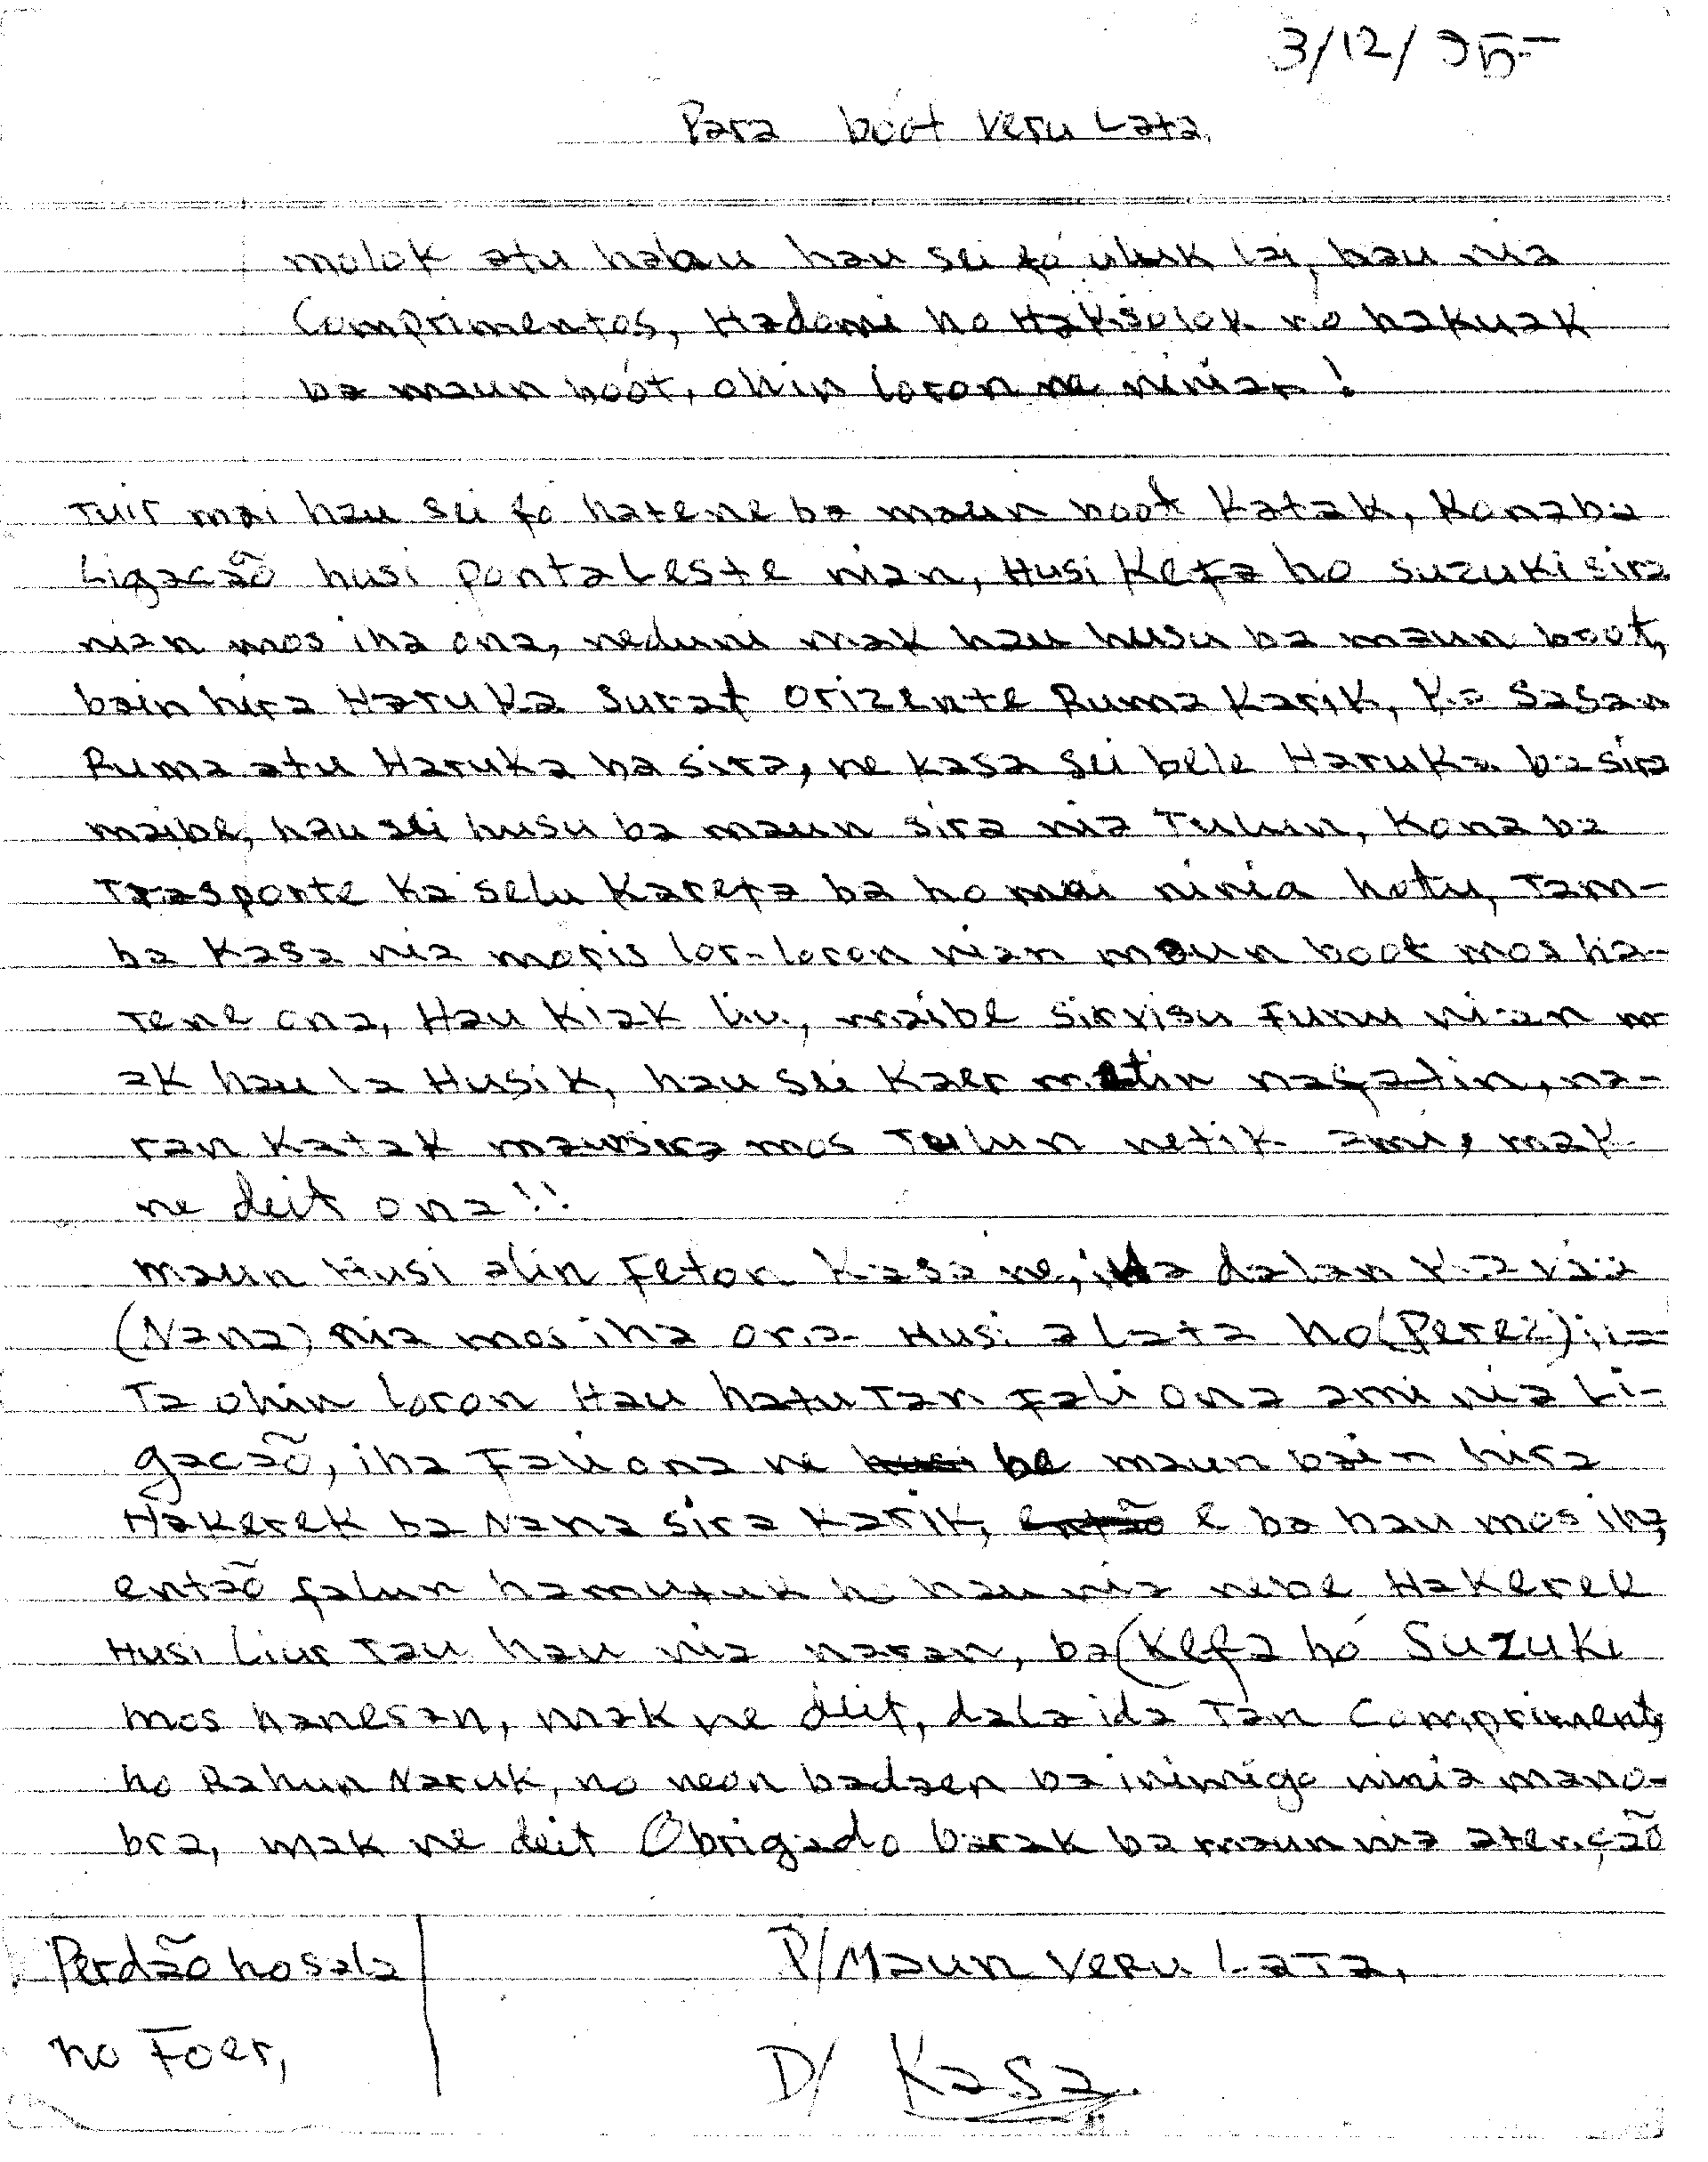 3/12/95-
Para boót Veru Lata,
molok atu halau hau sei fó uluk lai, hau nia
Comprimentos, Hadomi ho Haksolok no hakuak
ba maun boót, ohin loron ne ninian!
Tuir mai hau sei fó hatene ba maun boot Katak, Konaba
Ligacaõ husi ponta Leste nian, Husi Kefa ho suzuki sira
nian mos iha ona, neduni mak hau husu ba maun boot,
bain hira Haruka surat orizente Ruma Karik, Ka Sasan
Ruma atu Haruka ba sira, ne kasa sei bele Haruka ba sira
maibe, hau sei husu ba maun sira nia Tulun, Kona ba
Trasporte Ka selu Kareta ba ho mai ninia hotu, Tam-
ba Kasa nia moris lor-loron nian maun boot mos ha-
tene ona, Hau Kiak liu, maibe sirvisu funu nian m
ak hau la Husik, hau sei Kaer metin nafatin, na-
ran Katak maunsira mos Tulun netik ami, mak
ne deit ona!!
Maun Husi alin Feton Kasa ne, iha dalan
(Nana) nia mos iha ona Husi a Lata ho (Perez)
Ta ohin loron Hau hatutan fali ona ami nia Li-
gacaõ, iha Fali ona ne be maun bain hira
Hakerek ba Nana sira Karik, e ba hau mos iha,
entaõ falun hamutuk ho hau nia nebe Hakerek
Husi Liur Tau hau nia naran, ba (Kefa hó Suzuki
mos hanesan, mak ne deit, dala ida Tan Compriment,
ho Rahun Naruk, no neon badaen ba inimigo ninia mano-
bra, mak ne deit Obrigado barak ba maun nia atençaõ
Perdão ho sala
no Foer,
P/Maun Veru Lata,
D/ Kasa